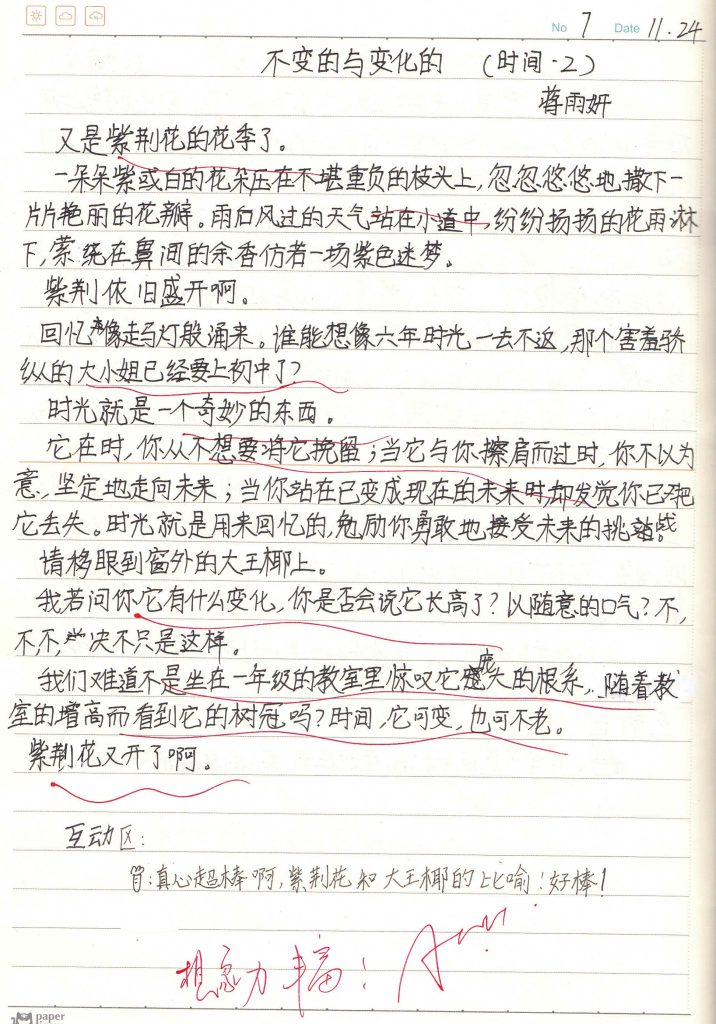 No 7 Date 11.24
不变的与变化的 (时间·2)
蒋雨妍
又是紫荆花的花季了。
一朵朵紫或白的花朵压在不堪重负的枝头上,忽忽悠悠地撒下一
片片艳丽的花瓣。雨口风过的天气站在小道中,纷纷扬扬的花雨淋
下,萦绕在鼻间的余香仿若一场紫色迷梦。
紫荆依旧盛开啊。
回忆像走马灯般涌来。谁能想像六年时光一去不返,那个害羞骄
纵的大小姐已经要上初中了?
时光就是一个奇妙的东西。
它在时,你从不想要将它挽留;当它与你擦肩而过时,你不以为
意,坚定地走向未来;当你站在已变成现在的未来时却发觉你已把
它丢失。时光就是用来回忆的,勉励你勇敢地接受未来的挑战。
请移眼到窗外的大王椰上。
我若问你它有什么变化,你是否会说它长高了?以随意的口气?不,
不,不,决不只是这样。
我们难道不是坐在一年级的教室里惊叹它庞大的根系,随着教
室的增高而看到它的树冠吗?时间,它可变,也可不老。
紫荆花又开了啊。
互动区:
:真心超棒啊,紫荆花和大王椰的比喻!好棒!
想象力丰富!
paper